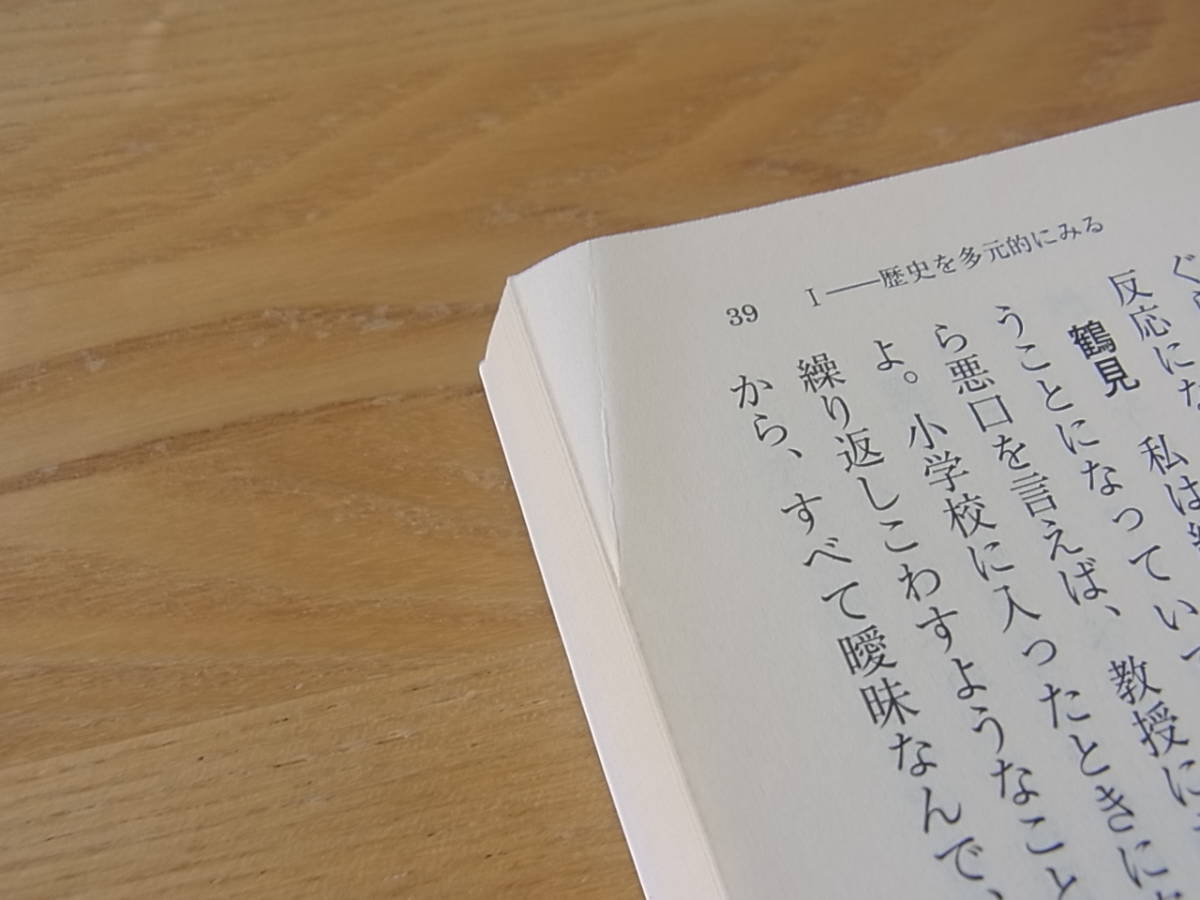 39 I——歴史を多元的にみる
ぐ
反応にな
鶴見 私は
うことになっていて
ら悪口を言えば、教授に
よ。小学校に入ったときに
繰り返しこわすようなこと
から、すべて曖昧なんで、